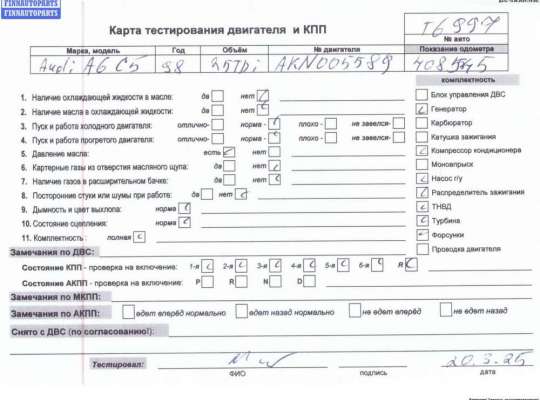 FINNAUTOPARTS
FINNAUTOPARTS
Карта тестирования двигателя и КПП
Т6997
№ авто
Марка, модель Год Объём № двигателя Показание одометра
Audi A6 C5 98 2,5TDi AKN005589 408545
комплектность
1. Наличие охлаждающей жидкости в масле: да нет
2. Наличие масла в охлаждающей жидкости: да нет
3. Пуск и работа холодного двигателя: отлично- норма - плохо - не завелся-
4. Пуск и работа прогретого двигателя: отлично- норма - плохо - не завелся-
5. Давление масла: есть нет
6. Картерные газы из отверстия масляного щупа: да нет
7. Наличие газов в расширительном бачке: да нет
8. Посторонние стуки или шумы при работе: да нет
9. Дымность и цвет выхлопа: норма
10. Состояние сцепления: норма
11. Комплектность: полная
Блок управления ДВС
Генератор
Карбюратор
Катушка зажигания
Компрессор кондиционера
Моновпрыск
Насос г/у
Распределитель зажигания
ТНВД
Турбина
Форсунки
Проводка двигателя
Замечания по ДВС:
Состояние КПП - проверка на включение: 1-я 2-я 3-я 4-я 5-я 6-я R
Состояние АКПП - проверка на включение: P R N D
Замечания по МКПП:
Замечания по АКПП: едет вперёд нормально едет назад нормально не едет вперёд не едет назад
Снято с ДВС (по согласованию!):
Тестировал: 20.3.25
ФИО подпись дата